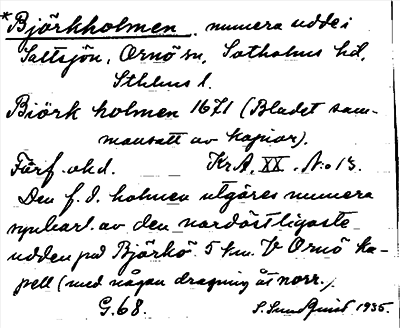 *Björkholmen. numera udde i
Saltsjön, Ornö sn, Sotholms hd,
Sthlms l.
Biörk holmen 1671 (Bladet sam-
mansatt av kopior).
Förf. okd. Kr.A. XX. No 13.
Den f. d. holmen utgöres numera
synbarl. av den nordöstligaste
udden på Björkö 5 km. V Ornö ka-
pell (med någon dragning åt norr.)
G.68. S. Sundquist 1935.